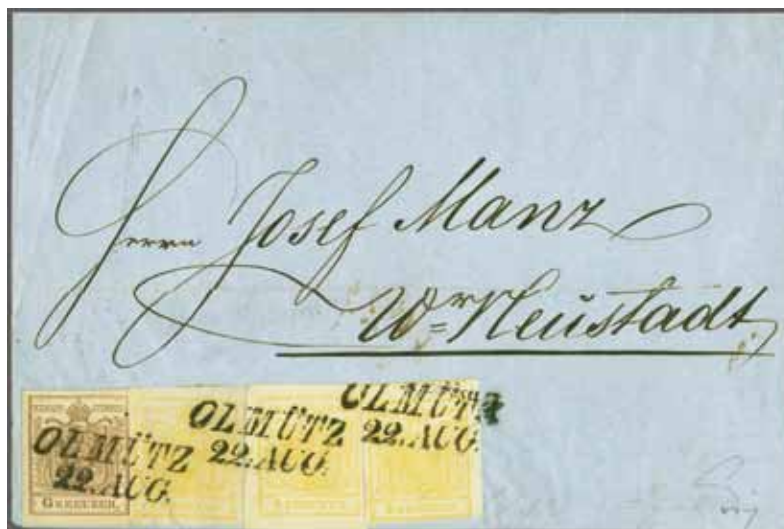 Herrn Josef Manz
Wr Neustadt
OLMÜTZ
22. AUG.
OLMÜTZ
22. AUG.
OLMÜTZ
22. AUG.
6 KREUZER.